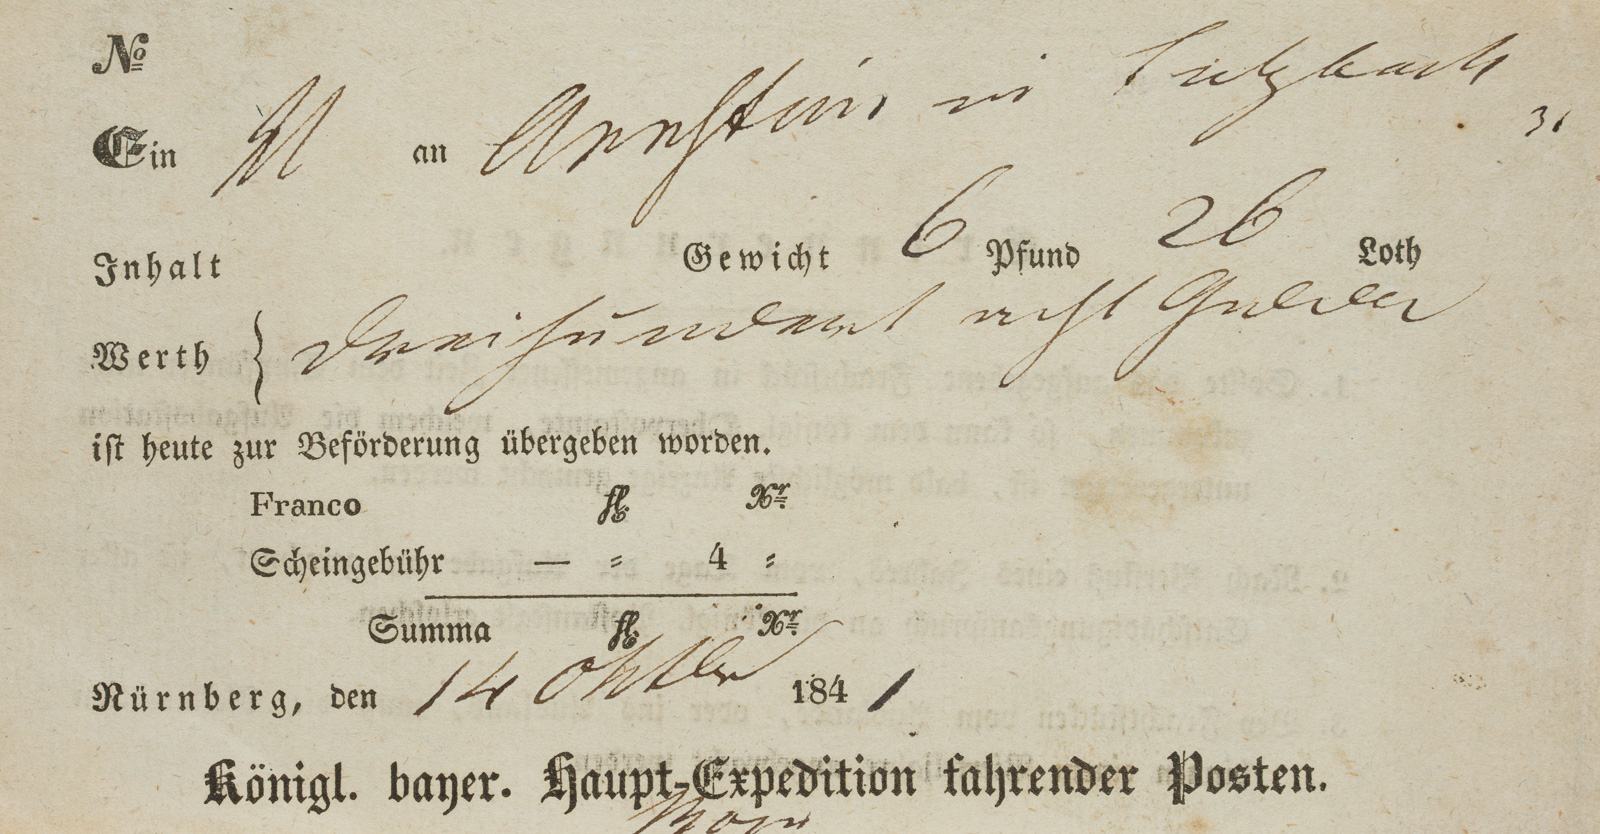 No
Ein an Arnstein in Sulzbach
31
Inhalt Gewicht 6 Pfund 26 Loth
Werth } Dreihundert acht Gulden
ist heute zur Beförderung übergeben worden.
Franco fl. Xr.
Scheingebühr — = 4 =
Summa fl. Xr.
Nürnberg, den 14 Oktbr 1841
Königl. bayer. Haupt-Expedition fahrender Posten.